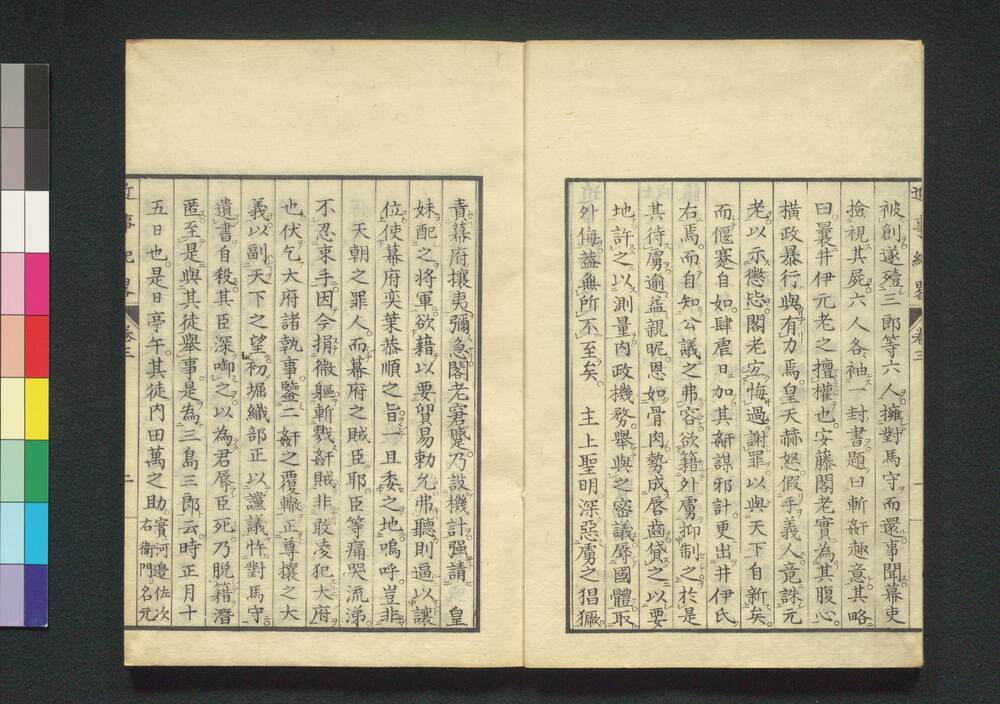 近事紀畧
卷三
一
被創遂殪三郎等六人擁對馬守而還事聞幕吏
撿視其屍六人各袖一封書題曰斬奸趣意其略
曰曩井伊元老之擅權也安藤閣老實為其腹心
橫政暴行與有力焉皇天赫怒假手義人竟誅元
老以示懲毖閣老宜悔過謝罪以與天下自新矣
而偃蹇自如肆虐日加其姧謀邪計更出井伊氏
右焉而自知公議之弗容欲籍外虜抑制之於是
其待虜逾益親昵恩如骨肉勢成唇齒貸之以要
地許之以測量內政機務舉與之密議辱國體取
外侮益無所不至矣　主上聖明深惡虜之猖獗
責幕府攘夷彌急閣老窘蹙乃設機計强請　皇
妹配之將軍欲藉以要貿易勅允弗聽則逼以讓
位使幕府奕葉恭順之旨一旦委之地嗚呼豈非
天朝之罪人而幕府之賊臣耶臣等痛哭流涕
不忍束手因今捐微軀斬戮姧賊非敢凌犯大府
也伏乞大府諸執事鑒二姧之覆轍正尊攘之大
義以副天下之望初堀織部正以讜議忤對馬守
遺書自殺其臣深啣之以為君辱臣死乃脱籍潛
匿至是與其徒舉事是為三島三郎云時正月十
五日也是日亭午其徒内田萬之助實河邉佐次
右衞門名元
近事紀畧
卷三
二